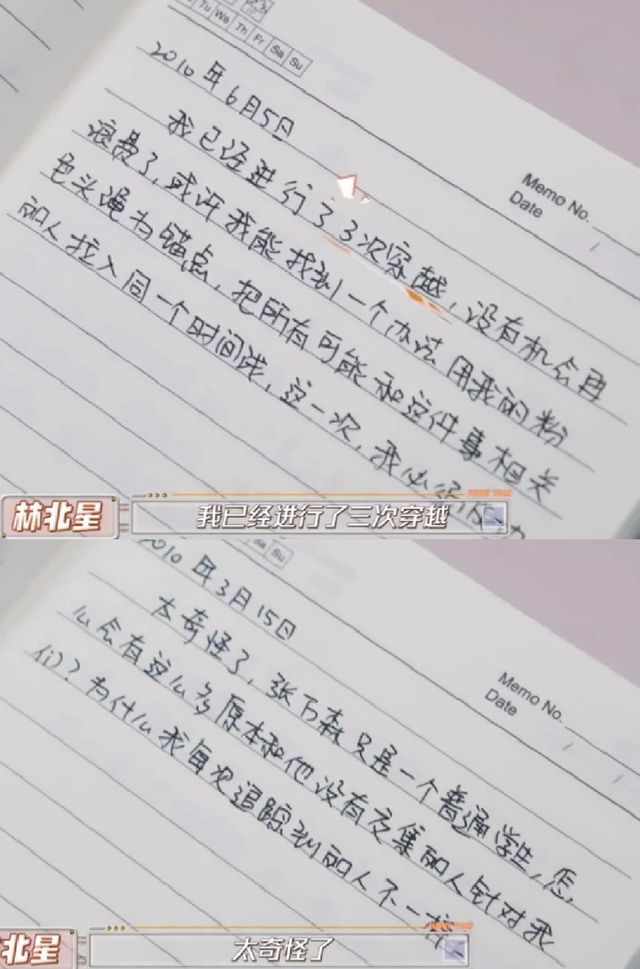 Tu We Th Fr Sa Su
2010年6月5日
Memo No.
Date
我已经进行了3次穿越，没有机会再
浪费了，或许我能找到一个办法用我的粉
色头绳为锚点，把所有可能和这件事相关
的人拉入同一个时间线，这一次，我必须
林北星
我已经进行了三次穿越
Sa Su
2010年3月15日
Memo No.
Date
太奇怪了，张万森只是一个普通学生，怎
么会有这么多原本和他没有交集的人针对我
们？为什么我每次追踪到的人不一样
北星
太奇怪了